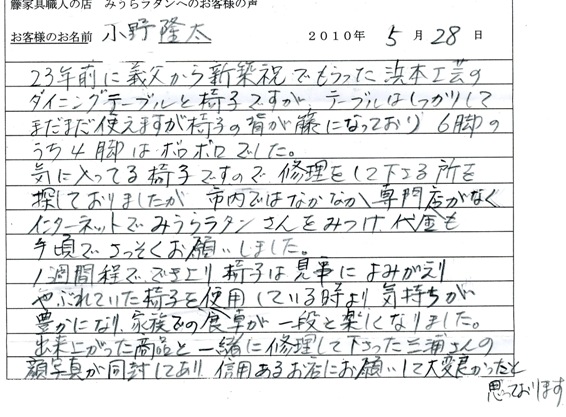 籐家具職人の店 みうらラタンへのお客様の声
お客様のお名前 小野隆太 2010年 5月 28日
23年前に義父から新築祝でもらった浜本工芸の
ダイニングテーブルと椅子ですが、テーブルはしっかりして
まだまだ使えますが椅子の背が藤になっており 6脚の
うち4脚はボロボロでした。
気に入ってる椅子ですので 修理をして下さる所を
探しておりましたが 市内ではなかなか専門店がなく
インターネットでみうらラタンさんをみつけ 代金も
手頃でさっそくお願いしました。
1週間程でできより 椅子は見事によみがえり
やぶれていた椅子を使用している時より 気持ちが
豊かになり、家族での食卓が一段と楽しくなりました。
出来上がった商品と一緒に修理して下さった三浦さんの
顔写真が同封してあり 信用あるお店にお願いして大変良かったと
思っております